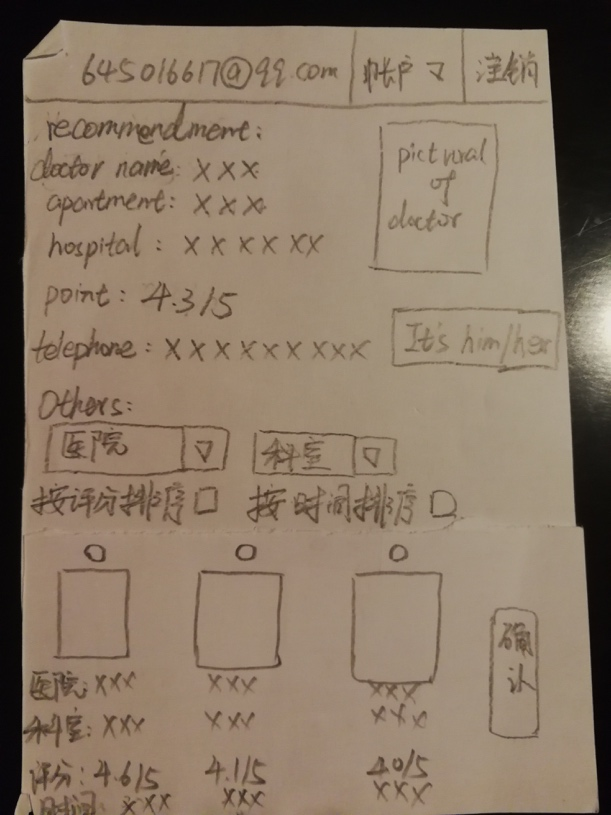 645016617@qq.com 帐户 ▽ 注销
recommendment:
doctor name: XXX
apartment: XXX
hospital: XXXXXX
point: 4.3/5
telephone: XXXXXXXXX
pictural
of
doctor
It's him/her
Others:
医院 ▽ 科室 ▽
按评分排序 □ 按时间排序 □
医院: XXX XXX XXX
科室: XXX XXX XXX
评分: 4.6/5 4.1/5 4.0/5
时间: XXX XXX XXX
确认